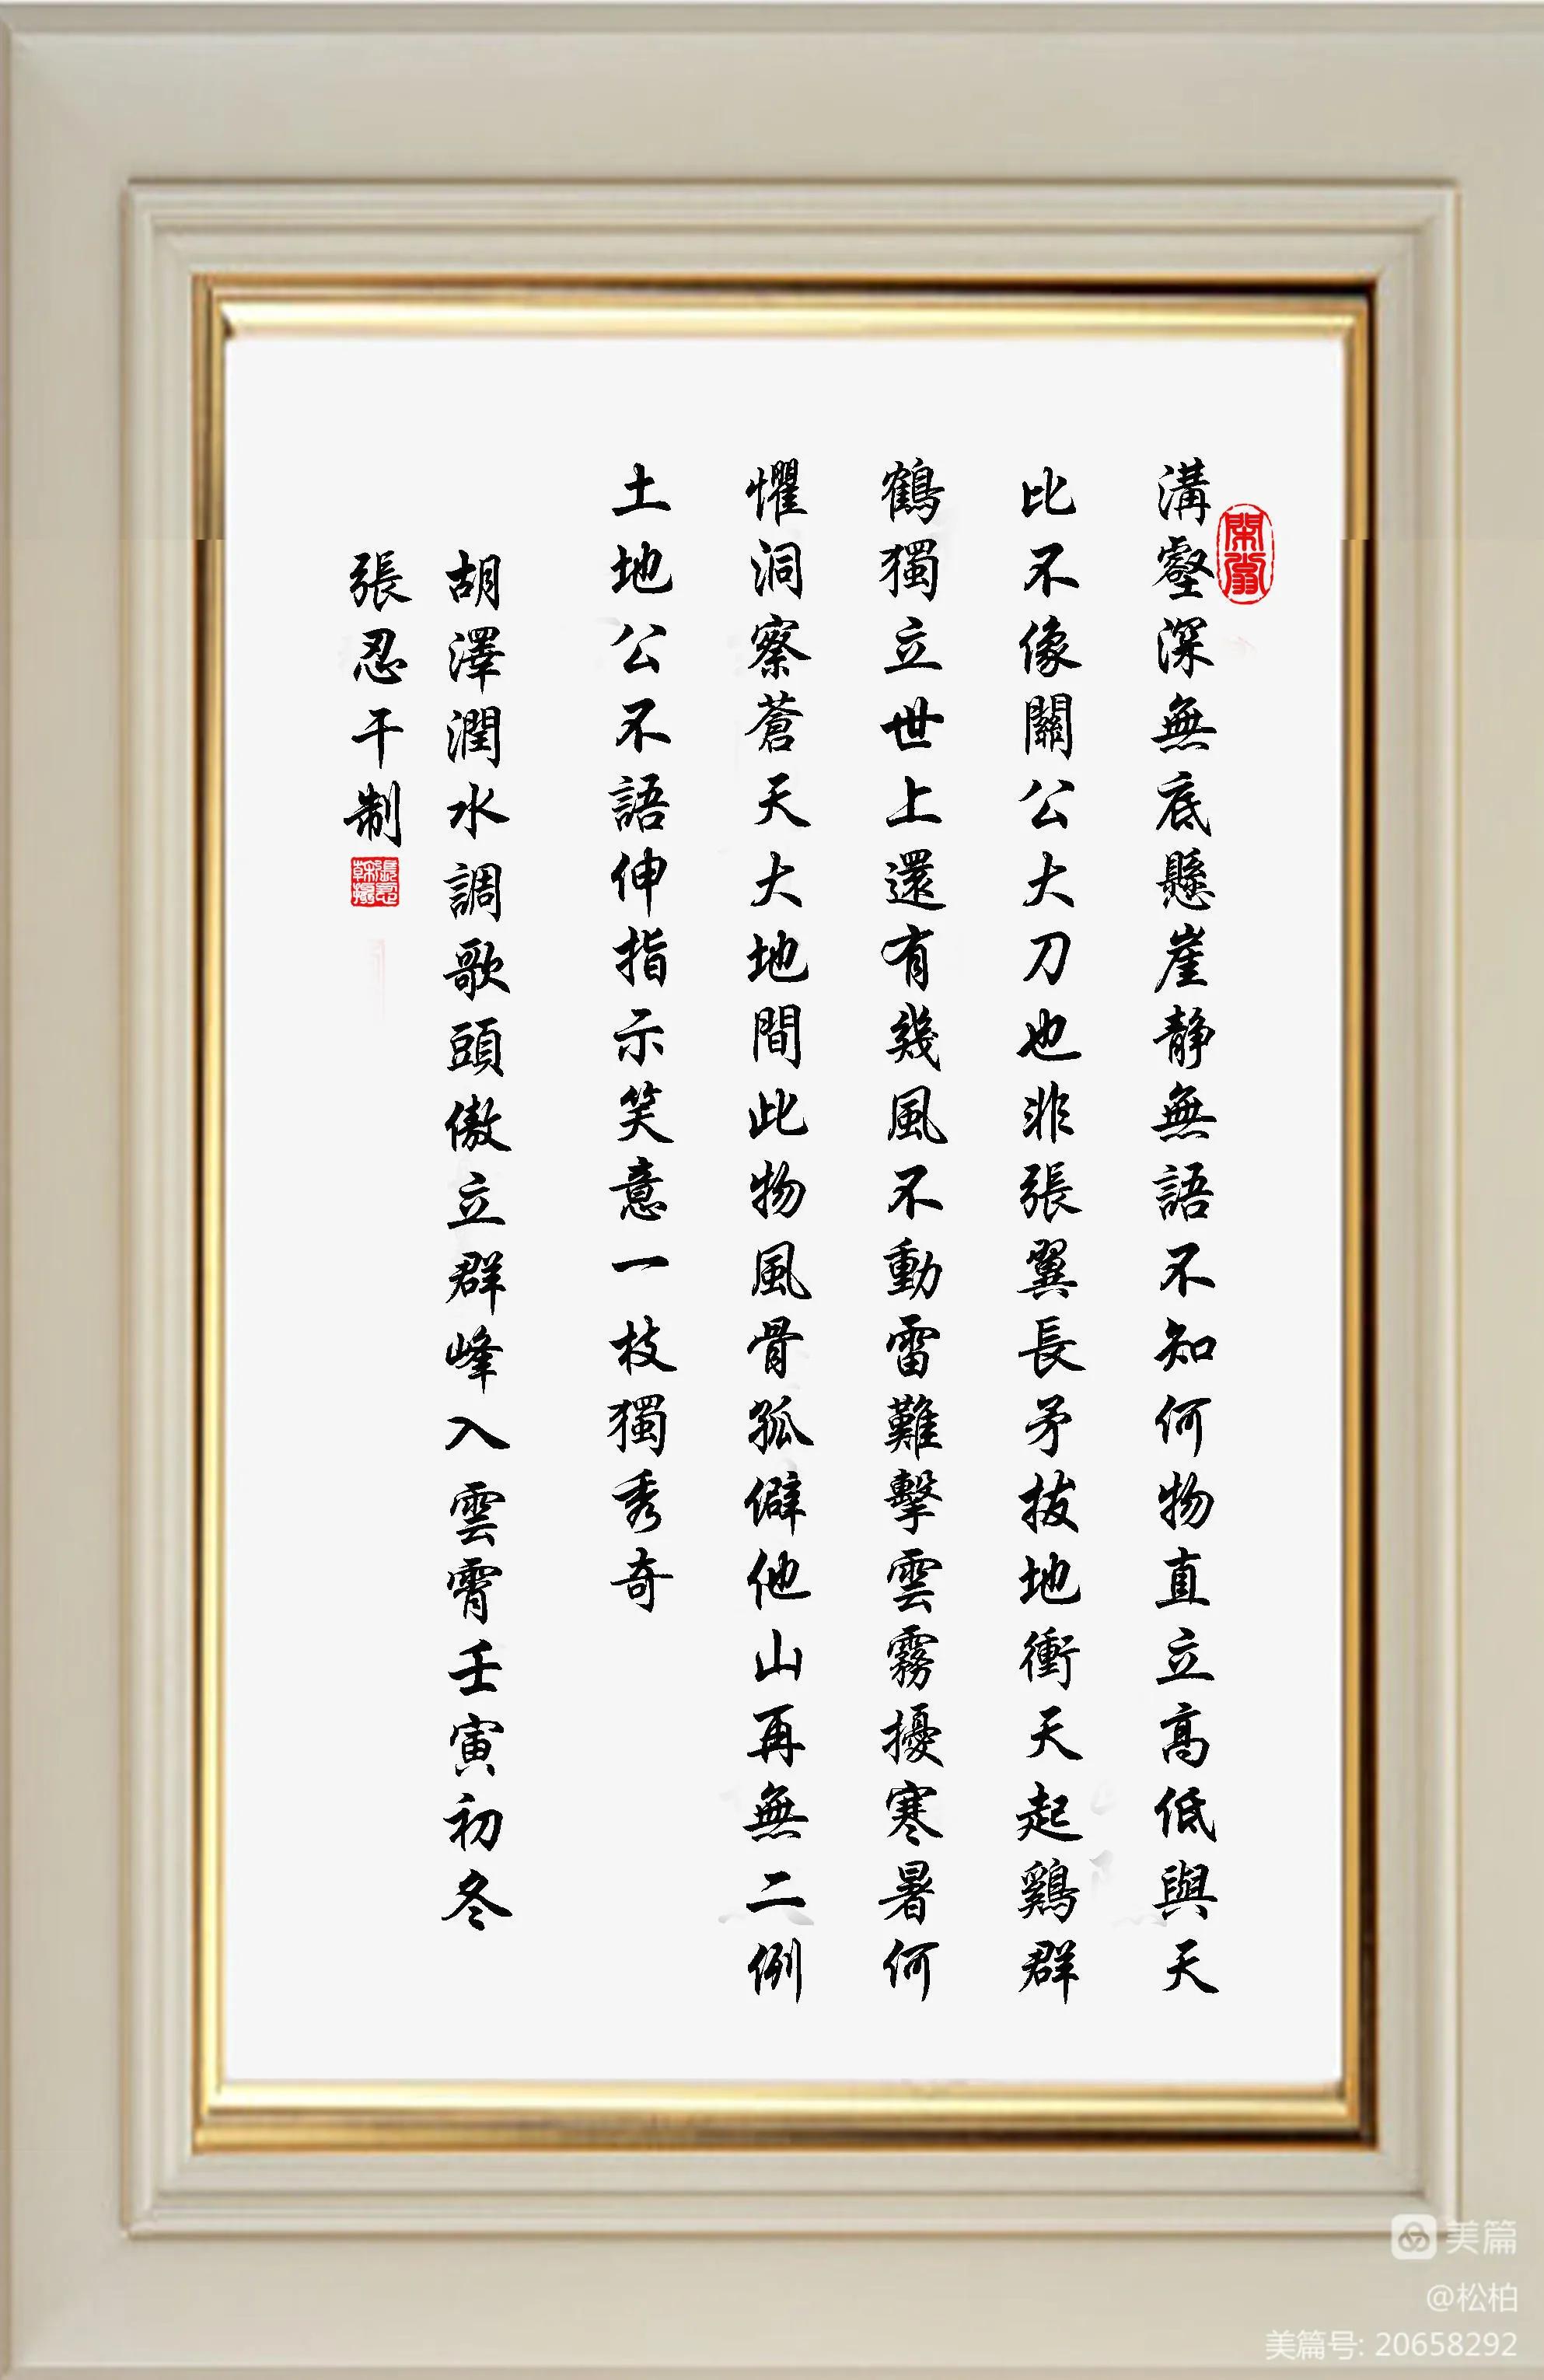 溝壑深無底懸崖靜無語不知何物直立高低與天
比不像關公大刀也非張翼長矛拔地衝天起鷄群
鶴獨立世上還有幾風不動雷難擊雲霧擾寒暑何
懼洞察蒼天大地間此物風骨孤僻他山再無二例
土地公不語伸指示笑意一枝獨秀奇
胡澤潤水調歌頭傲立群峰入雲霄壬寅初冬
張忍干制
美篇
@松柏
美篇号: 20658292